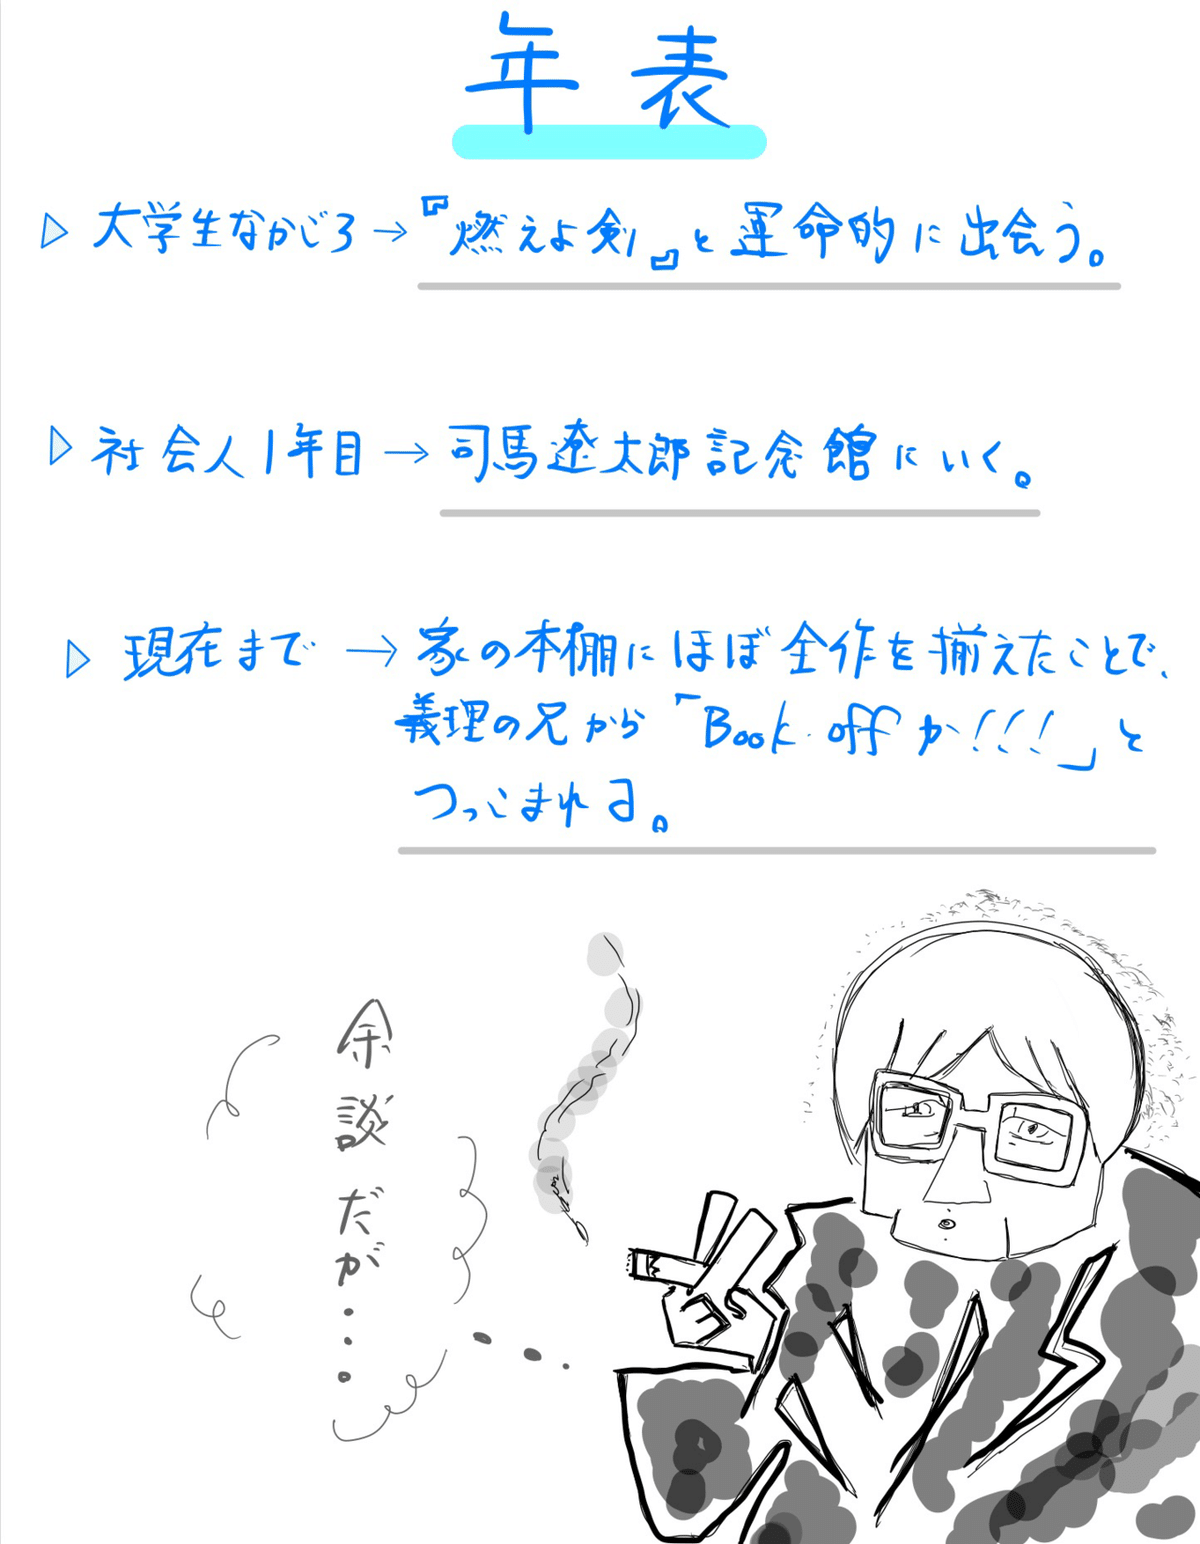 年表
▷ 大学生なかごろ→『燃えよ剣』と運命的に出会う。
▷ 社会人1年目→司馬遼太郎記念館にいく。
▷ 現在まで→家の本棚にほぼ全作を揃えたことで、
義理の兄から「Book offか!!!」と
つっこまれる。
余談だが・・・